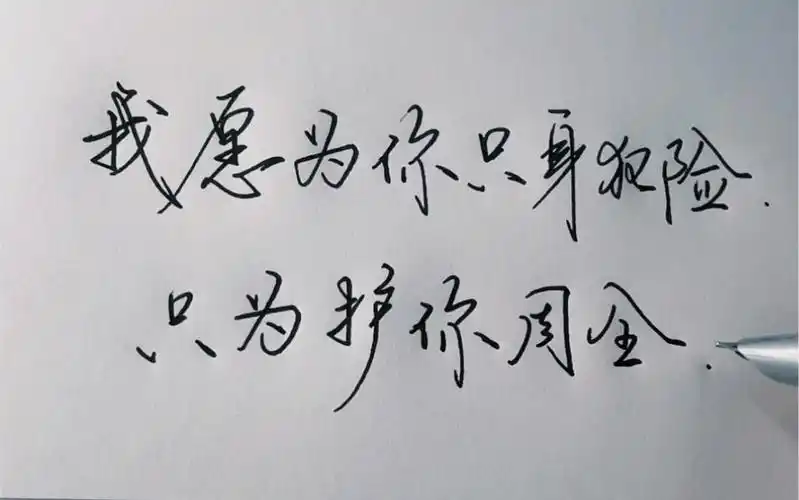 我愿为你只身犯险.
只为护你周全.